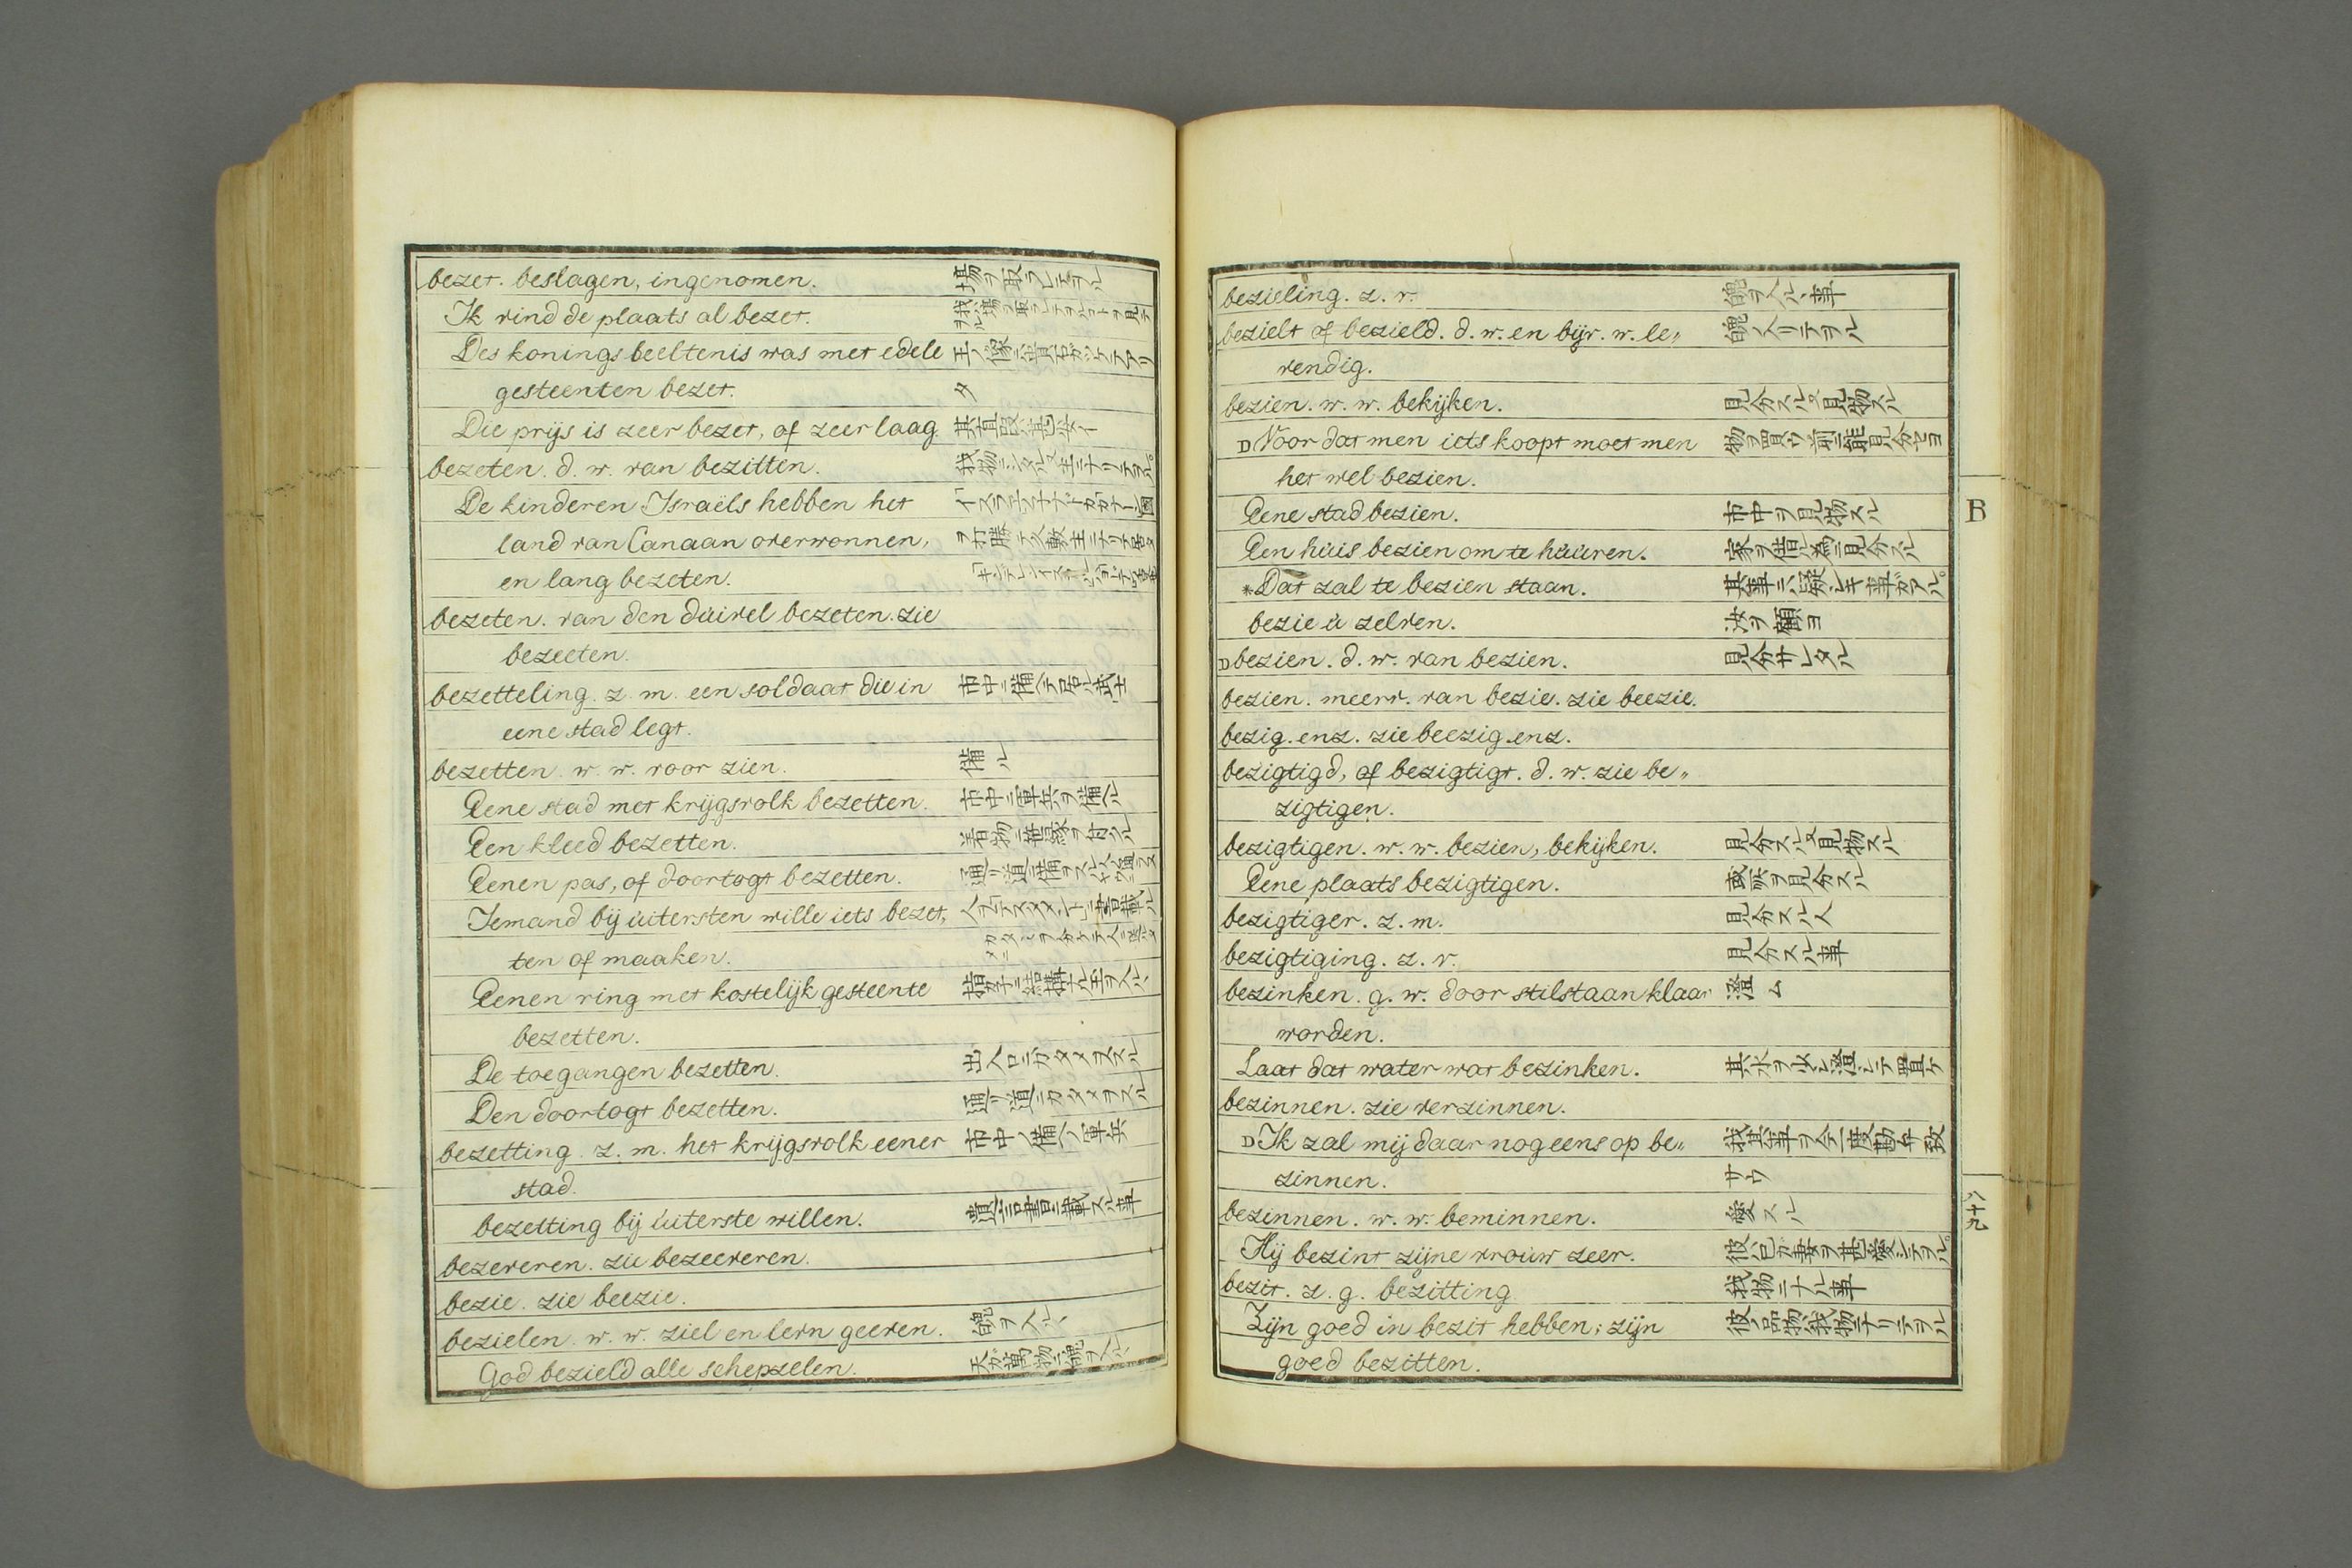 bezet. beslagen, ingenomen. 場ヲ取レテヲル
Ik vind de plaats al bezet.
Des konings beeltenis was met edele
gesteenten bezet. タ
Die prijs is zeer bezet, of zeer laag
bezeten. d. w. van bezitten.
De kinderen Israëls hebben het
land van Canaan overwonnen,
en lang bezeten.
bezeten. van den duivel bezeten. zie
bezeeten.
bezetteling. z. m. een soldaat die in 市中ニ備ヘテ居ル武士
eene stad legt.
bezetten. w. w. voor zien. 備ル
Eene stad met krijgsvolk bezetten. 市中ニ軍兵ヲ備ヘル
Een kleed bezetten.
Eenen pas, of doortogt bezetten.
Iemand bij uitersten wille iets bezet,
ten of maaken.
Eenen ring met kostelijk gesteente
bezetten.
De toegangen bezetten. 出入口ニカタメヲスル
Den doortogt bezetten. 通リ道ニカタメヲスル
bezetting. z. m. het krijgsvolk eener 市中ノ備ヘノ軍兵
stad.
bezetting bij uiterste willen. 遺言書ニ載スル事
bezeveren. zie bezeeveren.
bezie. zie beezie.
bezielen. w. w. ziel en levn geeven. 魂ヲ入ルヽ
God bezield alle schepzelen. 天ガ萬物ニ魂ヲ入ルヽ
bezieling. z. v. 魂ヲ入ルヽ事
bezielt of bezield. d. w. en bijv. w. le„ 魂入リテヲル
vendig.
bezien. w. w. bekijken. 見分スル又見物スル
D Voor dat men iets koopt moet men 物ヲ買ウ前ニ能見分セヨ
het wel bezien.
Eene stad bezien. 市中ヲ見物スル
Een huis bezien om te huuren. 家ヲ借ル為ニ見分スル
*Dat zal te bezien staan. 其事ニハ疑シキ事ガアル。
bezie u zelven. 汝ヲ顧ヨ
D bezien. d. w. van bezien. 見分サレタル
bezien. meerv. van bezie. zie beezie.
bezig. enz. zie beezig. enz.
bezigtigd, of bezigtigt. d. w. zie be„
zigtigen.
bezigtigen. w. w. bezien, bekijken. 見分スル又見物スル
Eene plaats bezigtigen. 或所ヲ見分スル
bezigtiger. z. m. 見分スル人
bezigtiging. z. v. 見分スル事
bezinken. g. w. door stilstaan klaar 澄ム
worden.
Laat dat water wat bezinken. 其水ヲ少シ澄シテ置ケ
bezinnen. zie verzinnen.
D Ik zal mij daar nog eens op be„ 我其事ヲ今一度勘弁致
zinnen. サウ
bezinnen. w. w. beminnen. 愛スル
Hij bezint zijne vrouw zeer. 彼ハ己ガ妻ヲ甚愛シテヲル。
bezit. z. g. bezitting. 我物ニナル事
Zijn goed in bezit hebben; zijn 彼ノ品物我物ニナリテヲル
goed bezitten.
B
八十九